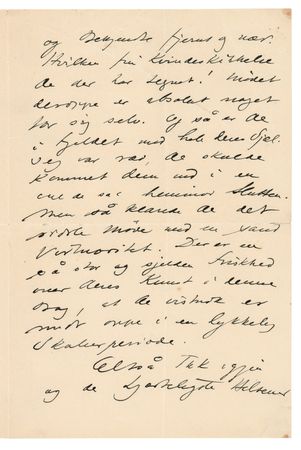 og Bekendte fjernt og nær.
Hvilken fin Kvindeskikkelse
De der har tegnet! Mødet
deroppe er absolut noget
for sig selv. Og så er De
i Gyldet med hele Deres Sjæl.
Jeg var ræd, De skulde
kommet dem ind i en
cul de sac henimod Slutten.
Men så klarede De det
med en sand
Virtuositet. Der er en
så stor og sjelden Friskhed
over Deres Kunst i denne
Bog, at De vistnok er
midt oppe i en lykkelig
Skaberperiode.
Altså Tak igjen
og de hjerteligste Hilsener